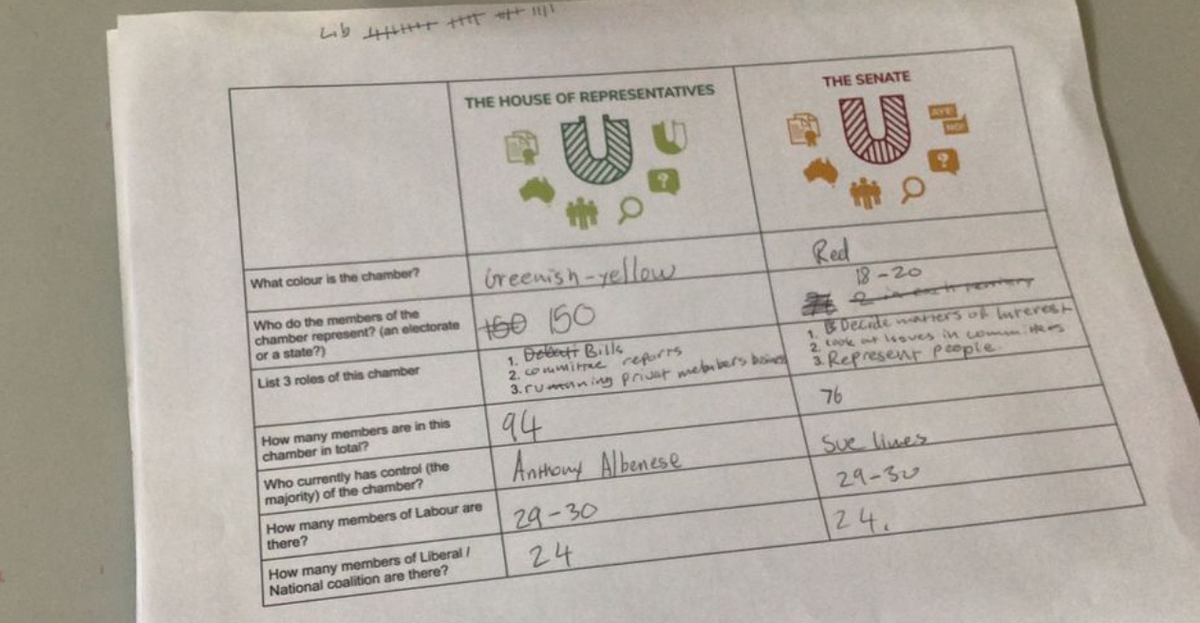 Lib
THE HOUSE OF REPRESENTATIVES
THE SENATE
AYE!
NO!
?
?
What colour is the chamber?
Greenish-yellow
Red
Who do the members of the
chamber represent? (an electorate
or a state?)
150 150
18-20
2 in each
List 3 roles of this chamber
1. Debati Bills
2. committee reports
3. running privat members
1. Decide matters of Interest
2. look at issues in committees
3. Represent people.
How many members are in this
chamber in total?
94
76
Who currently has control (the
majority) of the chamber?
Anthony Albenese
Sue lines
How many members of Labour are
there?
29-30
29-30
How many members of Liberal /
National coalition are there?
24
24.